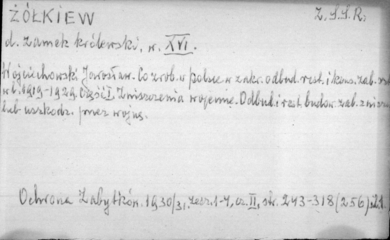 ŻÓŁKIEW Z.S.S.R.
d. zamek królewski, w. XVI.
Wojciechowski Jarosław. Co zrob. w polsce w zakr. odbud. rest. i kons. zab. szt.
w l. 1919-1929 Część I. Zniszczenia wojenne. Odbud. i rest. budow. zab. zniszcz.
lub uszkodz. przez wojnę.
Ochrona Zabytków. 1930/31. zesz. 1-4, cz. II, str. 243-318 (256)